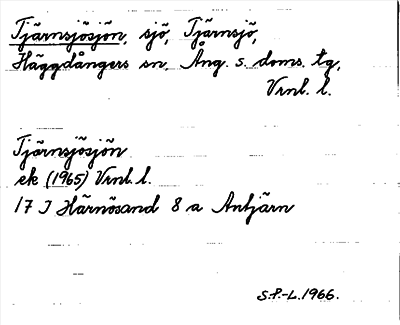 Tjärnsjösjön, sjö, Tjärnsjö,
Häggdångers sn, Ång. s. doms. tg,
Vrnl. l.
Tjärnsjösjön
ek (1965) Vrnl. l.
17 J Härnösand 8 a Antjärn
S.P.-L. 1966.